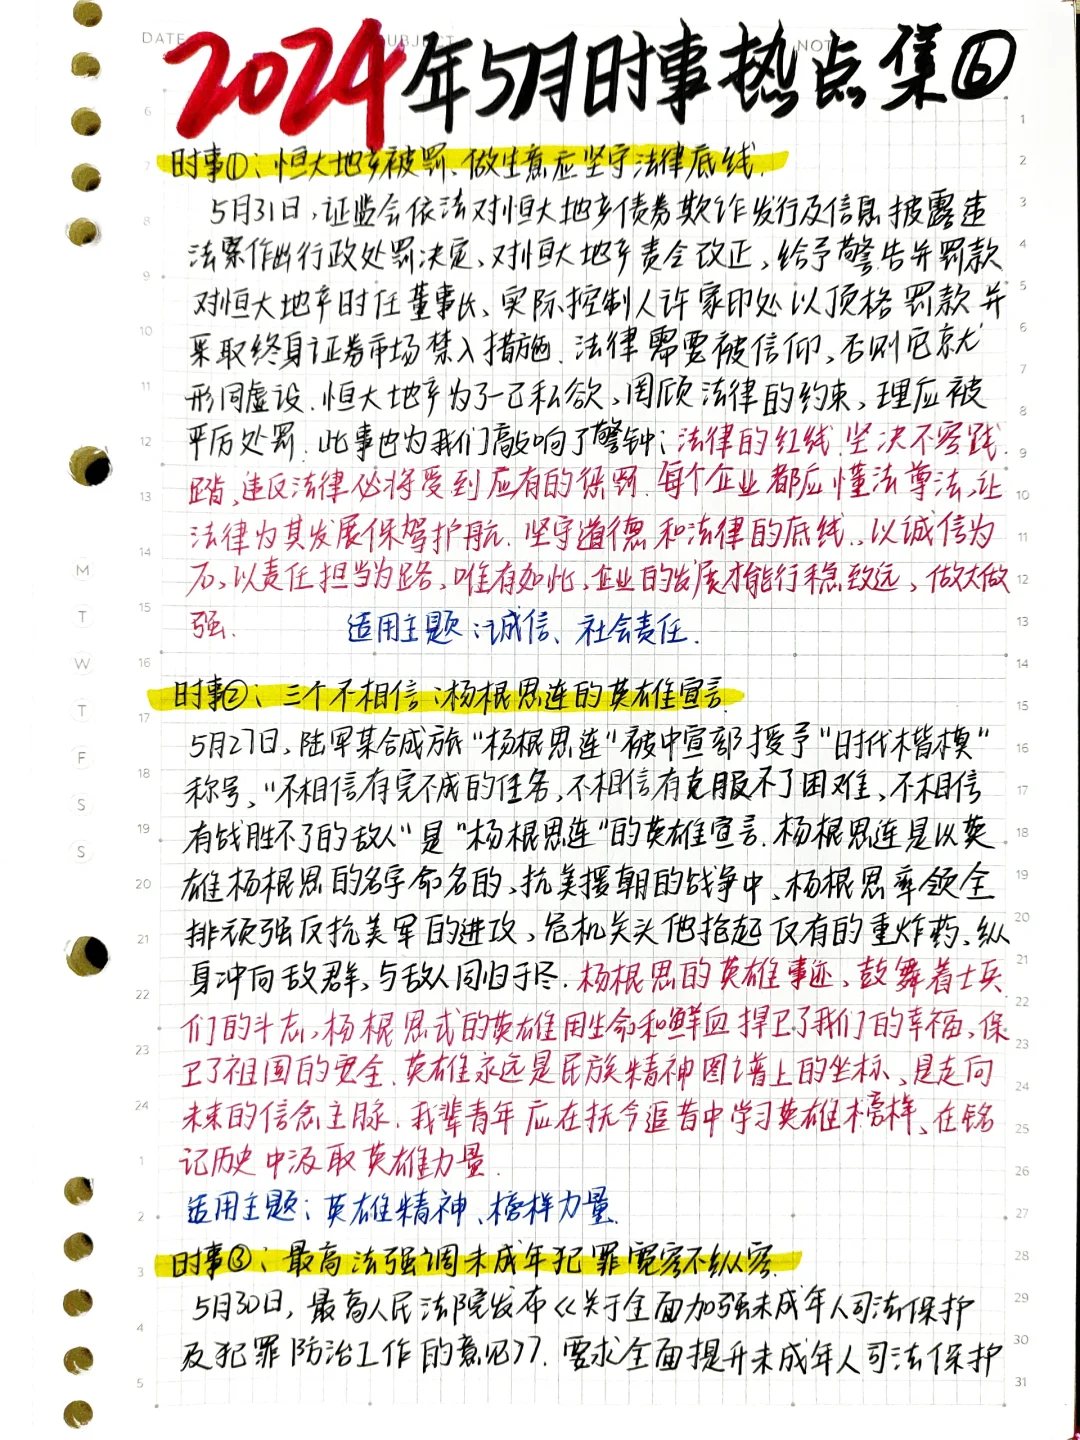 DATE SUBJECT NOTE
2024年5月时事热点集⑥
时事①：恒大地产被罚、做生意应坚守法律底线.
5月31日，证监会依法对恒大地产债券欺诈发行及信息披露违
法案作出行政处罚决定、对恒大地产责令改正，给予警告并罚款
对恒大地产时任董事长、实际控制人许家印处以顶格罚款并
采取终身证券市场禁入措施.法律需要被信仰，否则它就
形同虚设.恒大地产为了一己私欲、罔顾法律的约束，理应被
严厉处罚.此事也为我们敲响了警钟：法律的红线坚决不容践
踏，违反法律必将受到应有的惩罚.每个企业都应懂法尊法，让
法律为其发展保驾护航.坚守道德和法律的底线，以诚信为
石，以责任担当为路，唯有如此，企业的发展才能行稳致远，做大做
强.
适用主题：诚信、社会责任.
时事②：三个不相信：杨根思连的英雄宣言
5月27日，陆军某合成旅“杨根思连”被中宣部授予“时代楷模”
称号，“不相信有完不成的任务，不相信有克服不了困难，不相信
有战胜不了的敌人”是“杨根思连”的英雄宣言.杨根思连是以英
雄杨根思的名字命名的，抗美援朝的战争中，杨根思率领全
排顽强反抗美军的进攻，危机关头他抱起仅有的重炸药，纵
身冲向敌群，与敌人同归于尽.杨根思的英雄事迹，鼓舞着士兵
们的斗志，杨根思式的英雄用生命和鲜血捍卫了我们的幸福，保
卫了祖国的安全.英雄永远是民族精神图谱上的坐标、是走向
未来的信念主脉.我辈青年应在抚今追昔中学习英雄榜样、在铭
记历史中汲取英雄力量.
适用主题：英雄精神、榜样力量.
时事③：最高法强调未成年犯罪宽容不纵容.
5月30日，最高人民法院发布《关于全面加强未成年人司法保护
及犯罪防治工作的意见》.要求全面提升未成年人司法保护